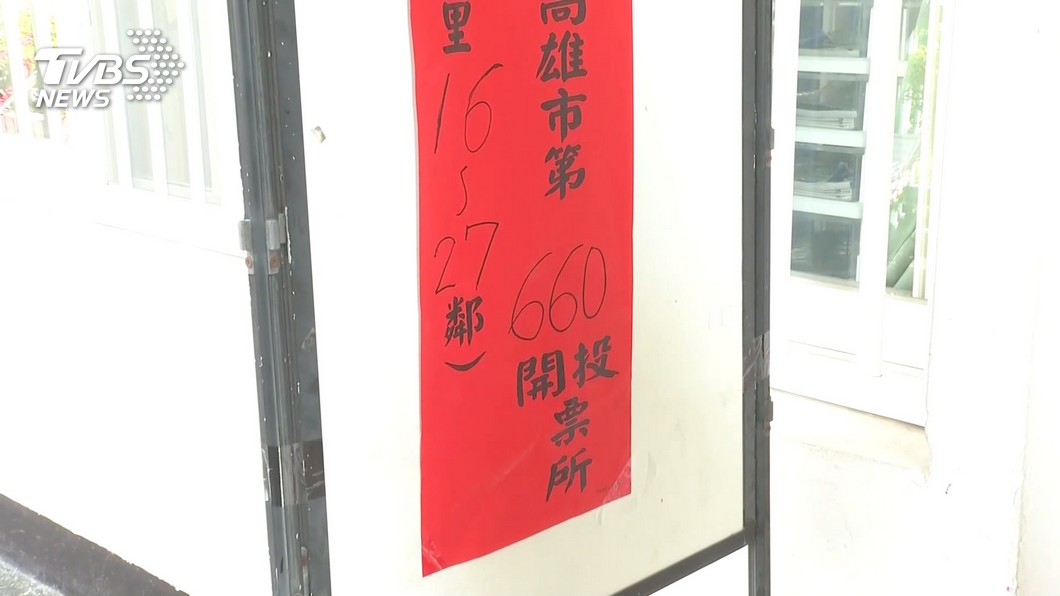 TVBS
NEWS
高雄市第660投開票所
里16~27鄰)